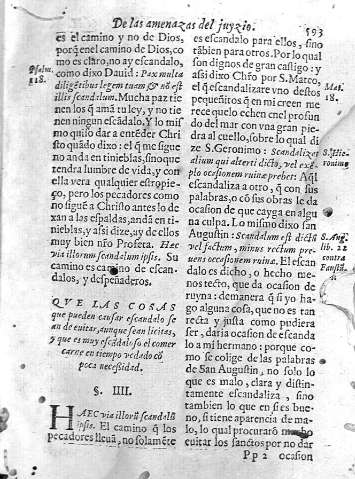 De las amenazas del juyzio.
593
es el camino y no de Dios,
porq̃ enel camino de Dios, co
mo es claro, no ay escandalo,
como dixo Dauid: Pax multa
diligẽtibus legem tuam & nõ est
illis scandalum. Mucha paz tie
nen los q̃ ama tu ley, y no tie
nen ningun escãdalo. Y lo mis
mo quiso dar a entẽder Chri
sto quãdo dixo: el q̃ me sigue
no anda en tinieblas, sino que
tendra lumbre de vida, y con
ella vera qualquier estropie-
ço, pero los pecadores como
no siguẽ a Christo antes lo de
xan a las espaldas, andã en ti-
nieblas, y assi dize, uy de ellos
muy bien nr̃o Profeta. Hæc
via illorum scandalum ipsis. Su
camino es camino de escan-
dalos, y despeñaderos.
QVE LAS COSAS
que pueden causar escandalo se
an de euitar, aunque sean licitas,
y que es muy escãdaloso el comer
carne en tiempo vedado cõ
poca necessidad.
§. IIII.
HAEC via illorũ scandalũ
ipsis. El camino q̃ los
pecadores lleuã, no solamẽte
Psalm.
118.
es escandalo para ellos, sino
tãbien para otros. Por lo qual
son dignos de gran castigo: y
assi dixo Chr̃o por S. Mateo,
el q̃ escandalizare vno destos
pequeñitos q̃ en mi creen me
rece que lo echen enel profun
do del mar con vna gran pie-
dra al cuello, sobre lo qual di
ze S. Geronimo: Scandalizet
alium qui alteri dicto, vel exẽ
plo occasionem ruinæ præbet: Aq̃l
escandaliza a otro, q̃ con sus
palabras, o cõ sus obras le da
ocasion de que cayga en algu
na culpa. Lo mismo dixo san
Augustin: Scandalum est dictũ
vel factum, minus rectum præ-
uens occasionem ruinæ. El escan
dalo es dicho, o hecho me-
nos recto, que da ocasion de
ruyna: demanera q̃ si yo ha-
go alguna cosa, que no es tan
recta y justa como pudiera
ser, daria ocasion de escanda
lo a mi hermano: porque co-
mo se colige de las palabras
de San Augustin, no solo lo
que es malo, clara y distin-
tamente escandaliza, sino
tambien lo que en si es bue-
no, si tiene aparencia de ma-
lo, lo qual procurarõ mucho
euitar los sanctos por no dar
Mat.
18.
S. Hie-
ronimo
S. Aug.
lib. 22
contra
Faustũ.
Pp 2 ocasion